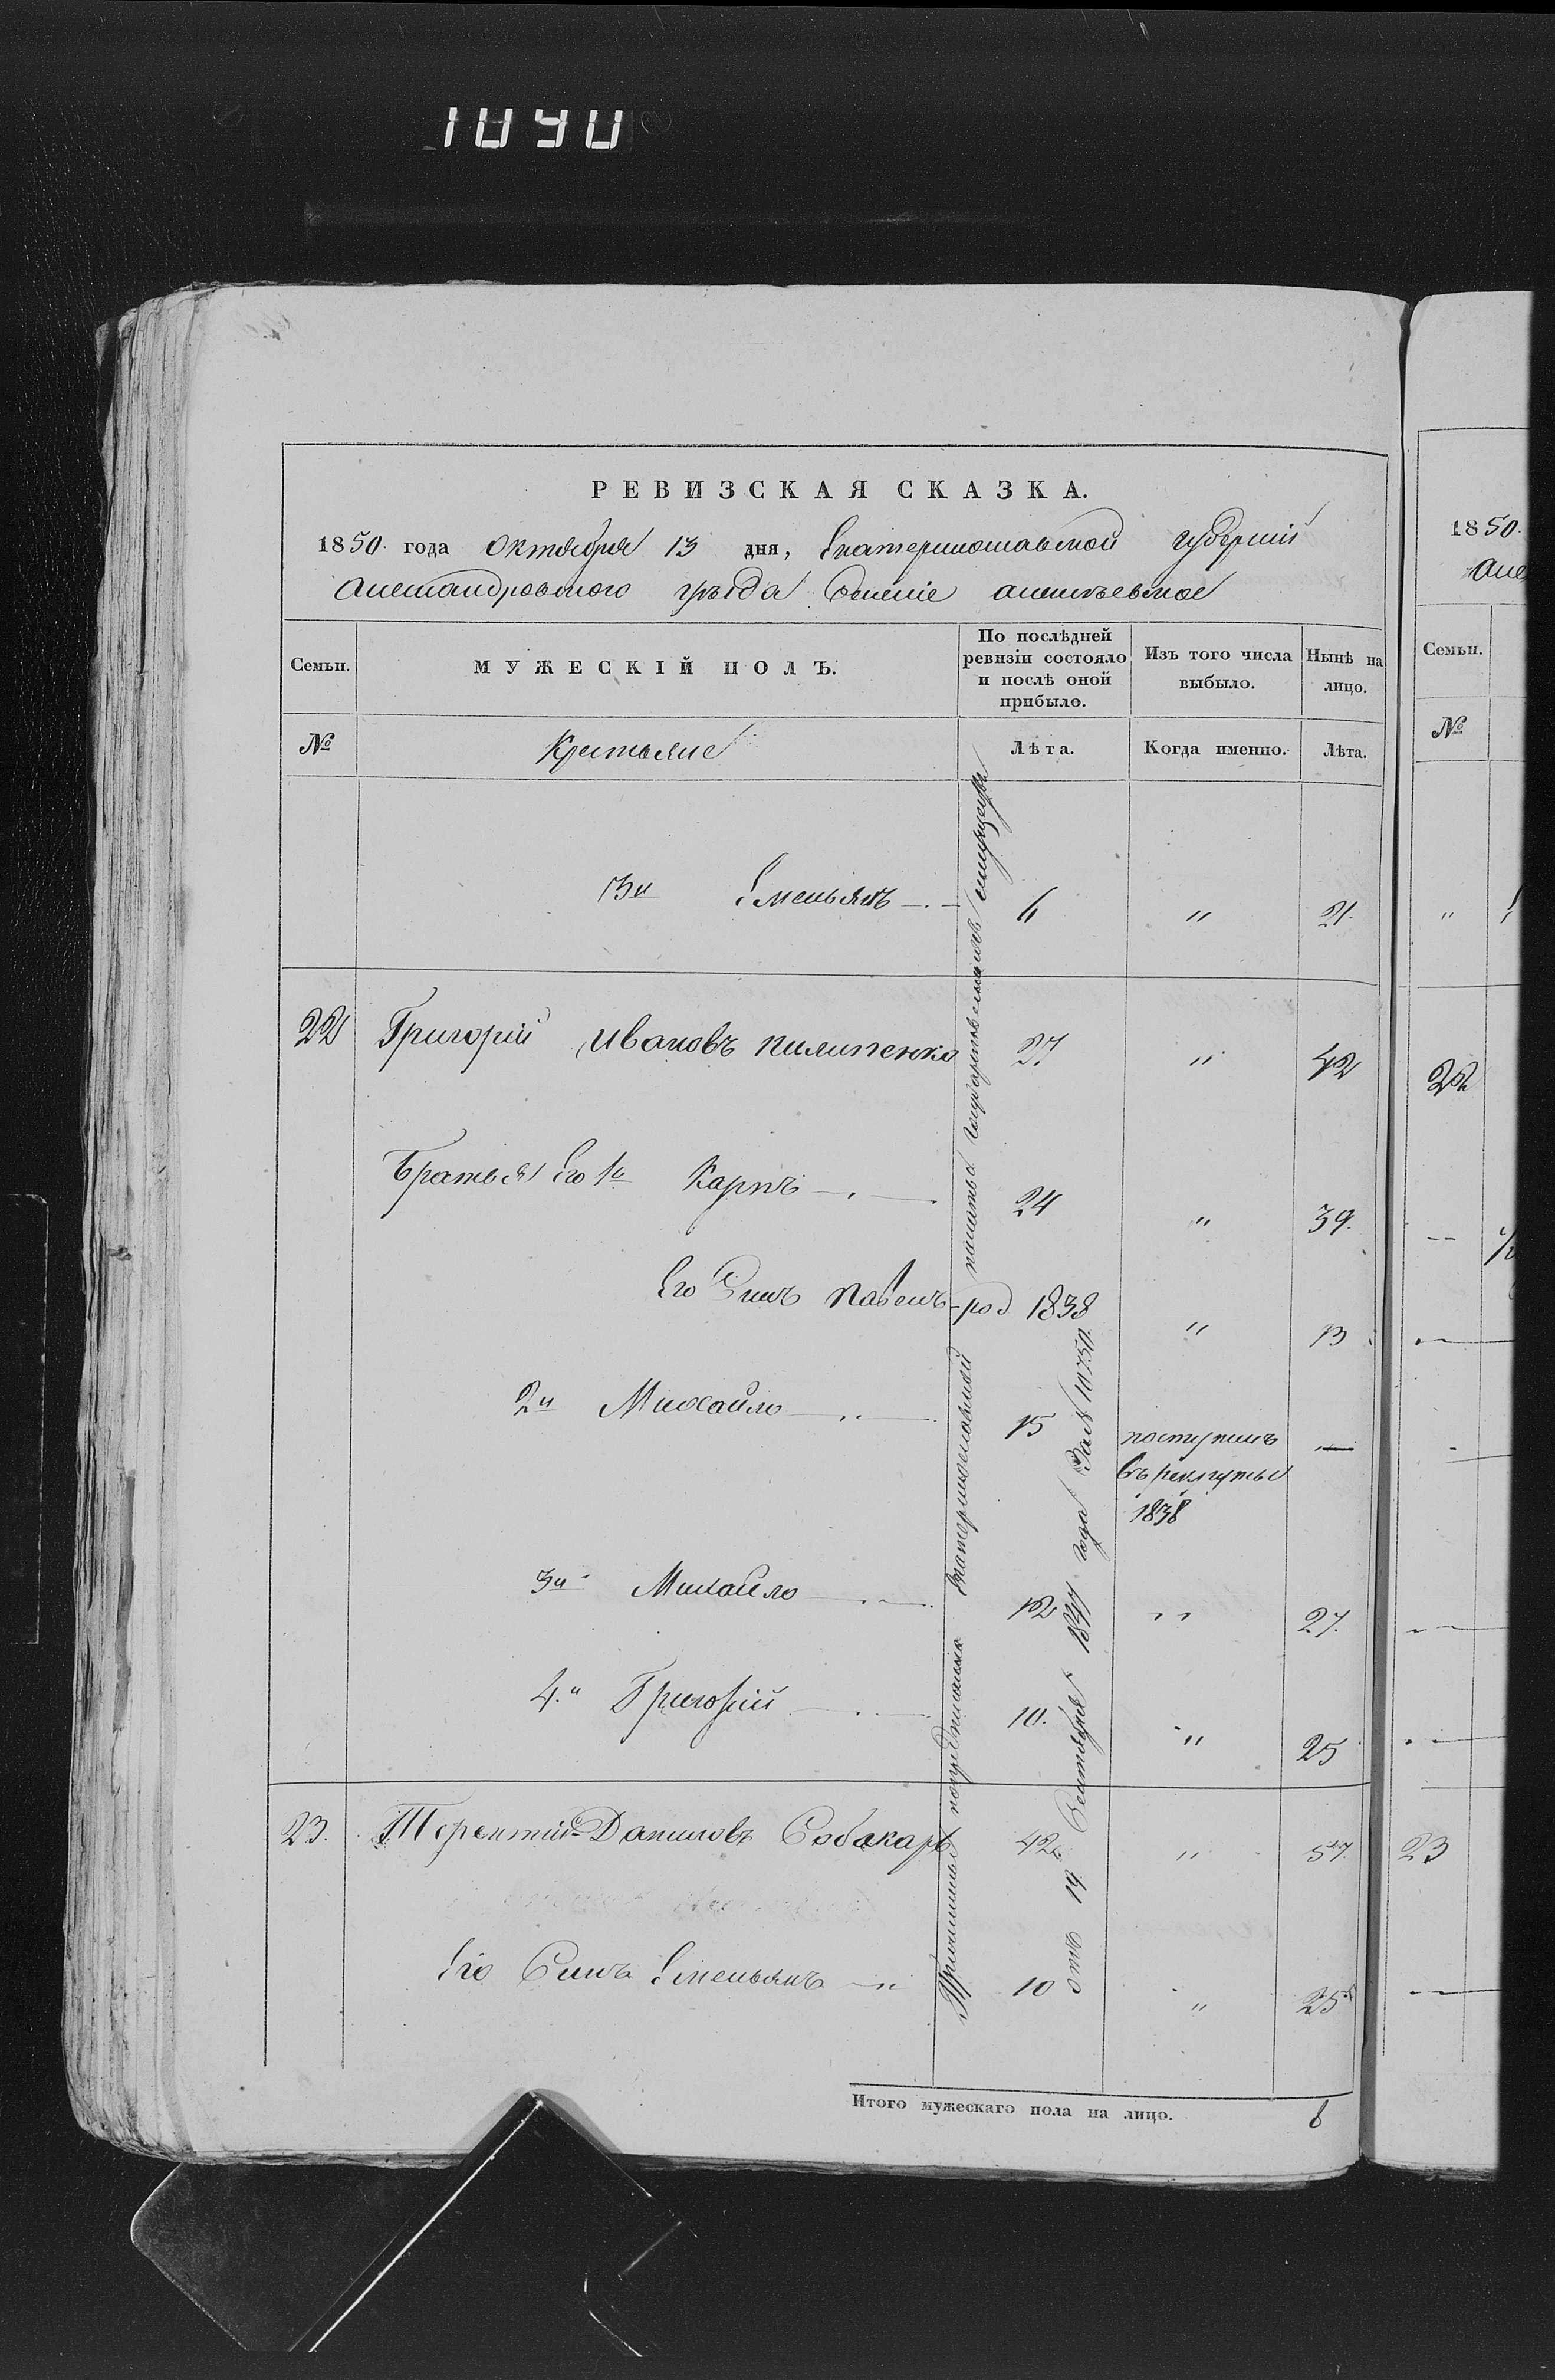 1090
РЕВИЗСКАЯ СКАЗКА.
1850. года Октября 13 дня, Екатеринославской губерніи
Александровского уѣзда Селеніе алексѣевское
Семьи. МУЖЕСКІЙ ПОЛЪ. По послѣдней ревизіи состояло и послѣ оной прибыло. Изъ того числа выбыло. Нынѣ на лицо.
№ Крестьяне Лѣта. Когда именно. Лѣта.
3й Емельянъ 6 " 21.
22 Григорій Ивановъ пилипенко 27 " 42
Братья Его 1й Карпъ 24 " 39.
Его Сынъ павелъ род 1838 " 13
2й Михайло 15 поступилъ
въ рекруты
1838 —
3й Михайло 12 " 27.
4.й Григорій 10. " 25
23. Терентий Даниловъ Собакарь 42 " 57.
Его Сынъ Емельянъ 10 " 25
Екатеринославской палаты Государственныхъ имуществъ
отъ 19 Сентября 1847 года За № 10750.
Итого мужескаго пола на лицо. 8
1850.
Семьи.
№
"
22
23